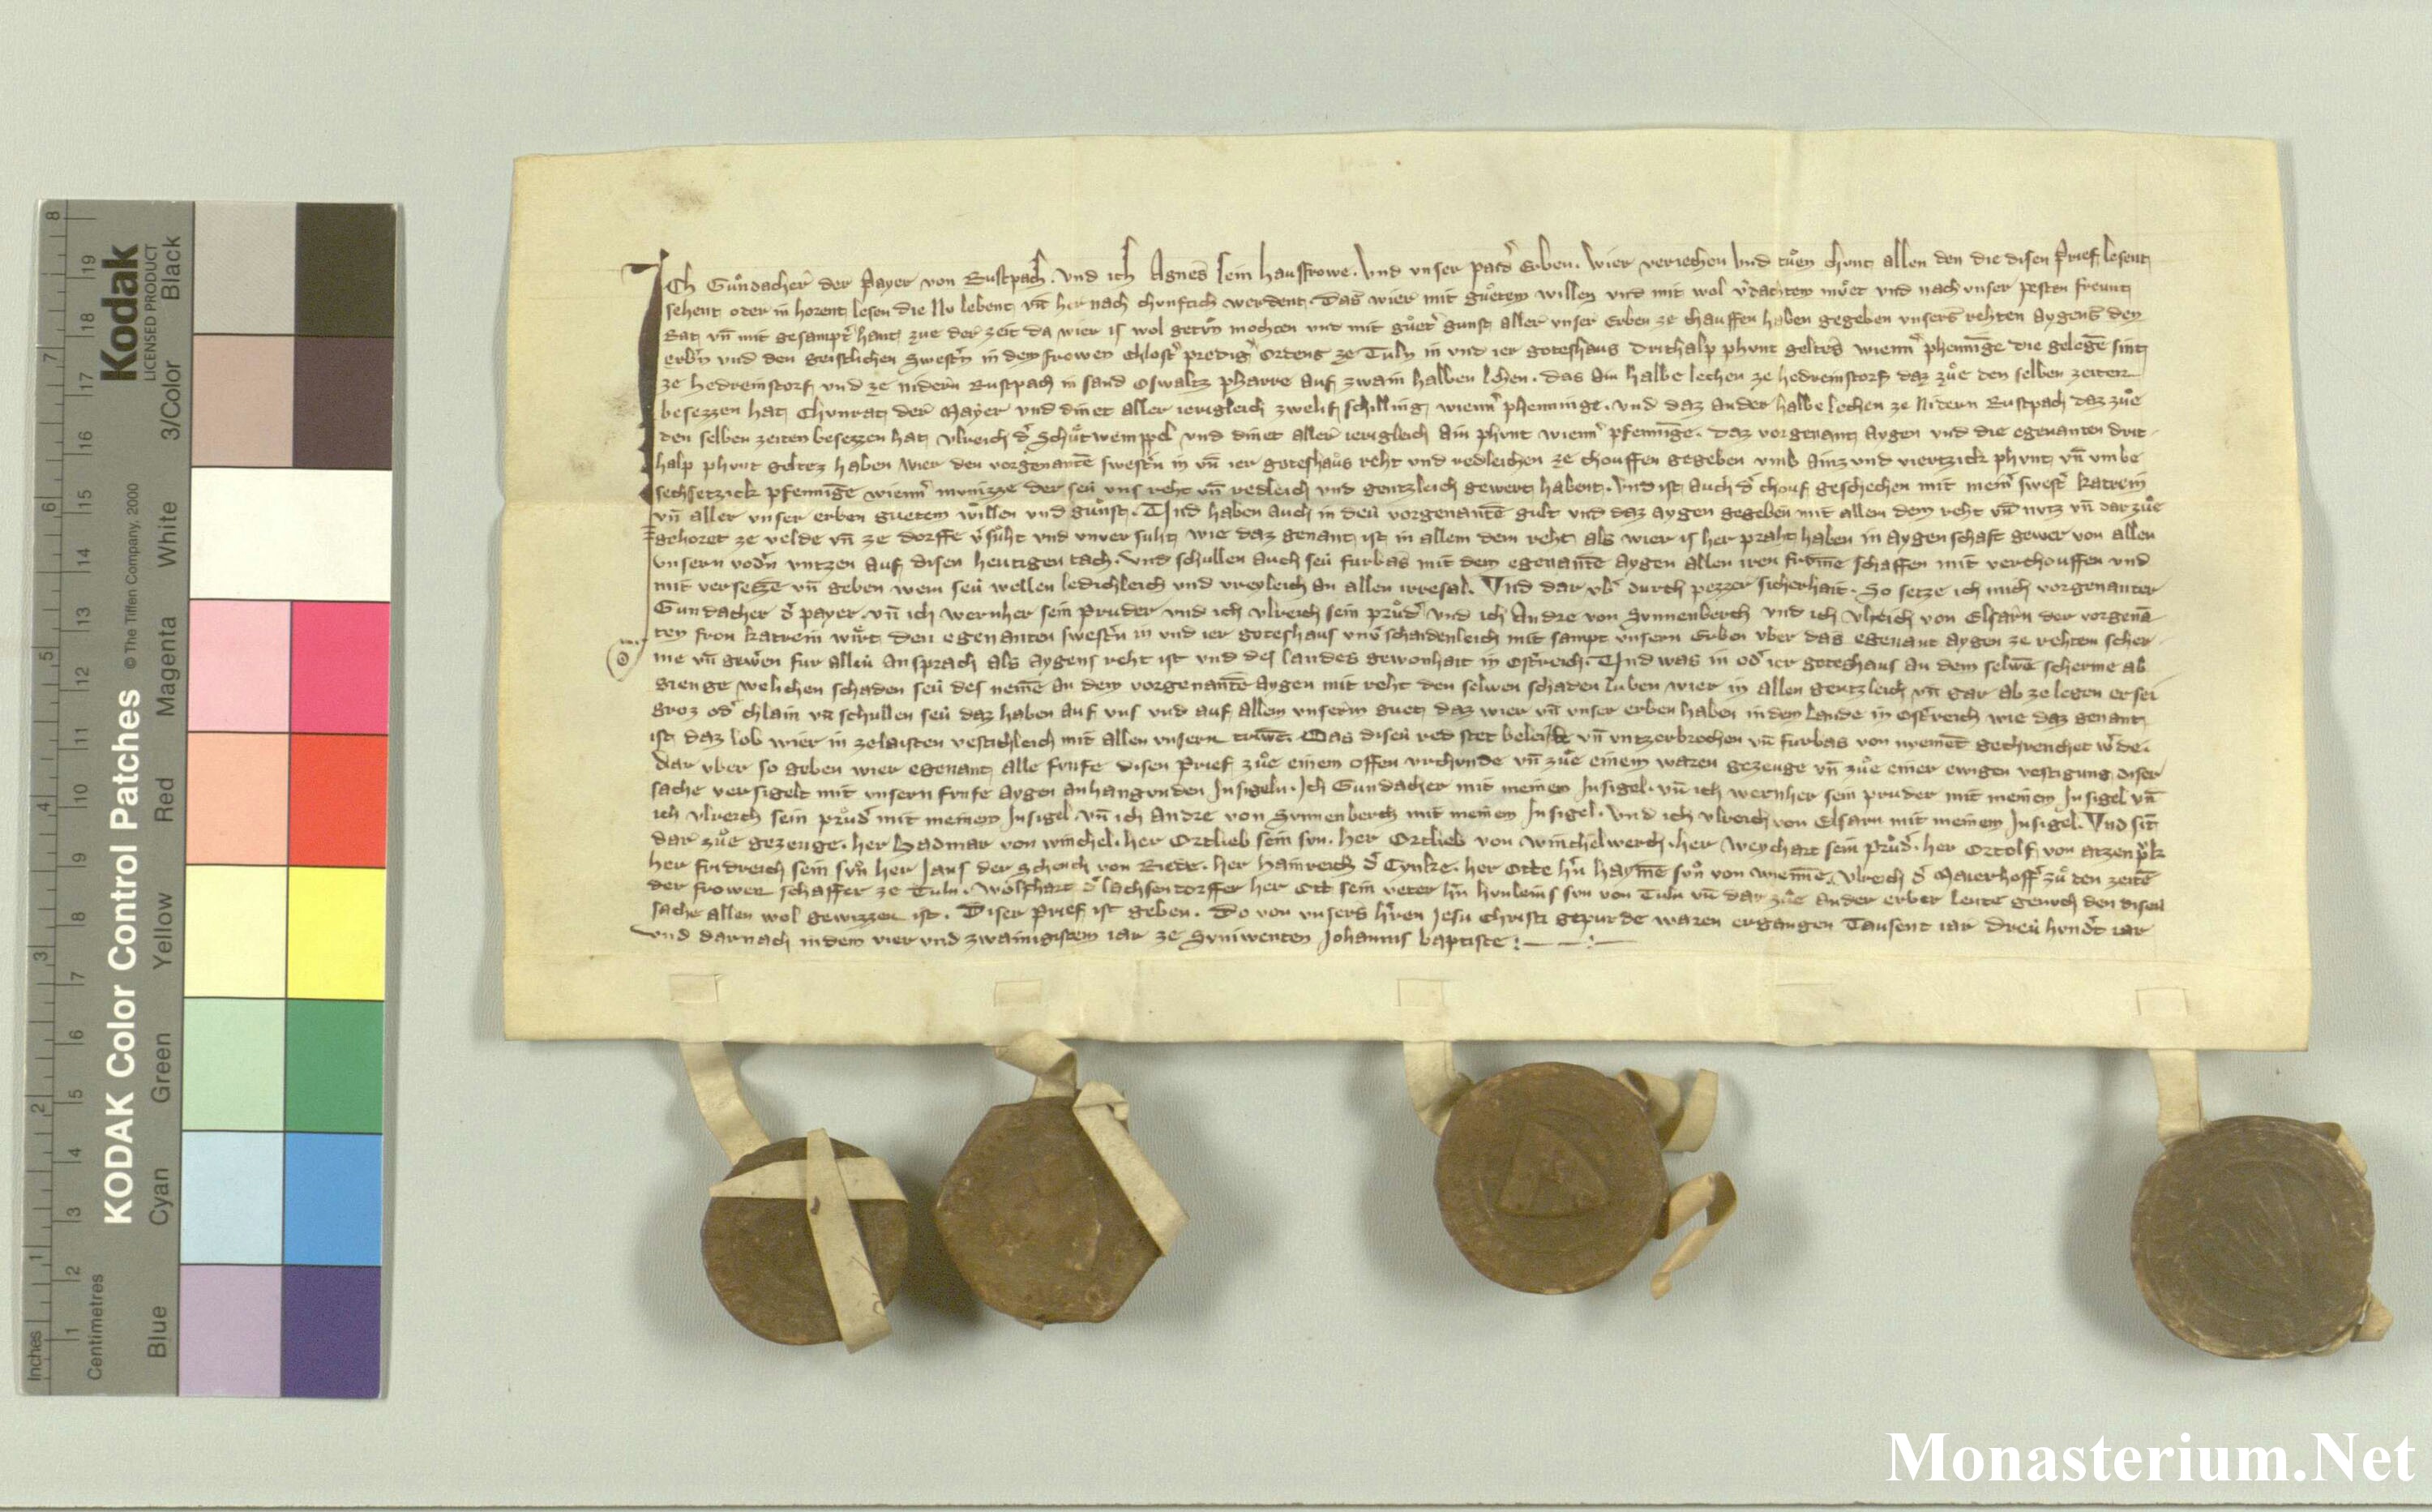 Ich Gůndacher der Payer von Rustpach. Und ich Agnes sein hausfrowe. Und unser paid' Erben. Wier veriechen Und tůen chunt allen den die disen Prief lesent
sehent oder in horent lesen die Nu lebent, vn̄ her nach chunftich werdent. Das wier mit gůetem willen und mit wol v'dachtem můet und nach unser pesten freunt
Rat, vn̄ mit gesampt' hant, zue der zeit da wier is wol getůn mochten und mit gůet' gunst aller unser Erben ze chauffen haben gegeben unsers rehten Aygens den
erb'n und den geistlichen Swest'n in dem frowen chlost' predig' Ordens ze Tuln in und ier goteshaus drithalp phunt geltes wienn' phenni̅ge die gelege̅ sint
ze hedreinstorf und ze nidern Rustpach in sand Oswaltz pharre Auf zwain halben lehen. das Ain halbe lechen ze hedreinstorf daz zůe den selben zeiten
besezzen hat, Chunrat, der Mayer und dinet aller ierigleich zwelif schilling wienn' phenninge. und daz ander halbe lechen ze Nidern Rustpach daz zůe
den selben zeiten besezzen hat, Ulreich d' Schůtwemppel und dinet aller ierigleich Ain phunt wienn' pfenni̅ge. Daz vorgenant Aygen und die egenanten drit-
halp phunt geltez haben wier den vorgenante̅ swest'n in vn̄ ier goteshaůs reht und redleichen ze chouffen gegeben umb Ainz und viertzick phunt, vn̄ umbe
sechsetzick pfenni̅ge wienn' munizze der seu uns reht vn̄ redleich und gentzleich gewert habent. Und ist auch d' chouf geschechen mit mein' swest' katrein
vn̄ aller unser erben guetem willen und gůnst. Und haben auch in deu vorgenante̅ gult und daz Aygen gegeben mit allem dem reht vn̄ nutz vn̄ dar zůe
gehoret ze velde vn̄ ze dorffe v'sůht und unver suht, wie daz genant ist in allem dem reht, als wier is her praht haben in Aygenschaft gewer von allen
unsern vod'n untzen Auf disen heutigen tach. Und schullen auch seu furbas mit dem egenante̅ Aygen allen iren frume̅ schaffen mit verchouffen und
mit versetze̅ vn̄ geben wem seu wellen ledichleich und vreyleich an allen irresal. Und dar ub' durch pezzer sicherhait. So setze ich mich vorgenanter
Gundacher d' payer. vn̄ ich wernher sein Pruder und ich Ulreich sein průd' und ich Andre von Sunnenberch und ich Ulreich von Elsarn der vorgena̅
ten fron katrein wirt den egenanten swest'n in und ier goteshaus unv'schaidenleich mit sampt unsern Erben uber das egenant Aygen ze rehtem scher-
me vn̄ gewern fur alleu ansprach als Aygens reht ist und des landes gewonhait in Ost'reich. Und was in od' ier goteshaus an dem selwe̅ scherme ab
gienge welichen schaden seu des neme̅ an dem vorgenante̅ Aygen mit reht den selwen schaden luben wier in allen gentzleich vn̄ gar ab ze legen er sei
groz od' chlain vn̄ schullen seu daz haben auf uns und auf allem unserm guet, daz wier vn̄ unser erben haben in dem lande in Ost'reich wie daz genant
ist, daz lob wier in ze laisten vestichleich mit allen unsern triwe̅. Das diseu red stet beleibe vn̄ untzerbrochen vn̄ furbas von nieme̅t gechrenchet w'de.
Dar uber so geben wier egenant alle funfe disen Prief zůe einem offen urchunde vn̄ zůe einem waren gezeuge vn̄ zůe einer ewigen vestigung diser
sache versigelt mit unsern funfe Aygen anhangunden Insigeln. Ich Gundacher mit meinem Insigel. vn̄ ich wernher sein pruder mit meinem Insigel vn̄
ich Ulreich sein průd' mit meinem Insigel vn̄ ich Andre von Sunnenberch mit meinem Insigel. Und ich Ulreich von Elsarn mit meinem Insigel. Und sint
dar zůe gezeuge. her Hadmar von winchel. her Ortlieb sein sun. her Ortlieb von winchelwerch. her weychart sein průd'. her Ortolf von Atzenp'k
her fridreich sein sůn her Jans der Schench von Riede. her Hainreich d' Tynke. her Otte h'n hayme̅ sůn von wienne. Ulreich d' Maierhoff' zů den zeite̅
der frowen schaffer ze Tuln. Wolfhart d' lachsentorffer her Ott sein veter h'n hunleins sun von Tuln vn̄ dar zůe ander erber leute genuch den disew
sache allen wol gewizzen ist. Diser Prief ist geben. Do von unsers h'ren Jesu Christi gepurde waren ergangen Tausent iar dreu hund't iar
und darnach in dem vier und zwainzigistem iar ze Suniwenten Johannis baptiste :— —:—
KODAK Color Control Patches
Kodak
LICENSED PRODUCT
© The Tiffen Company, 2000
Blue Cyan Green Yellow Red Magenta White 3/Color Black
Inches 1 2 3 4 5 6 7 8
Centimetres 1 2 3 4 5 6 7 8 9 10 11 12 13 14 15 16 17 18 19
Monasterium.Net